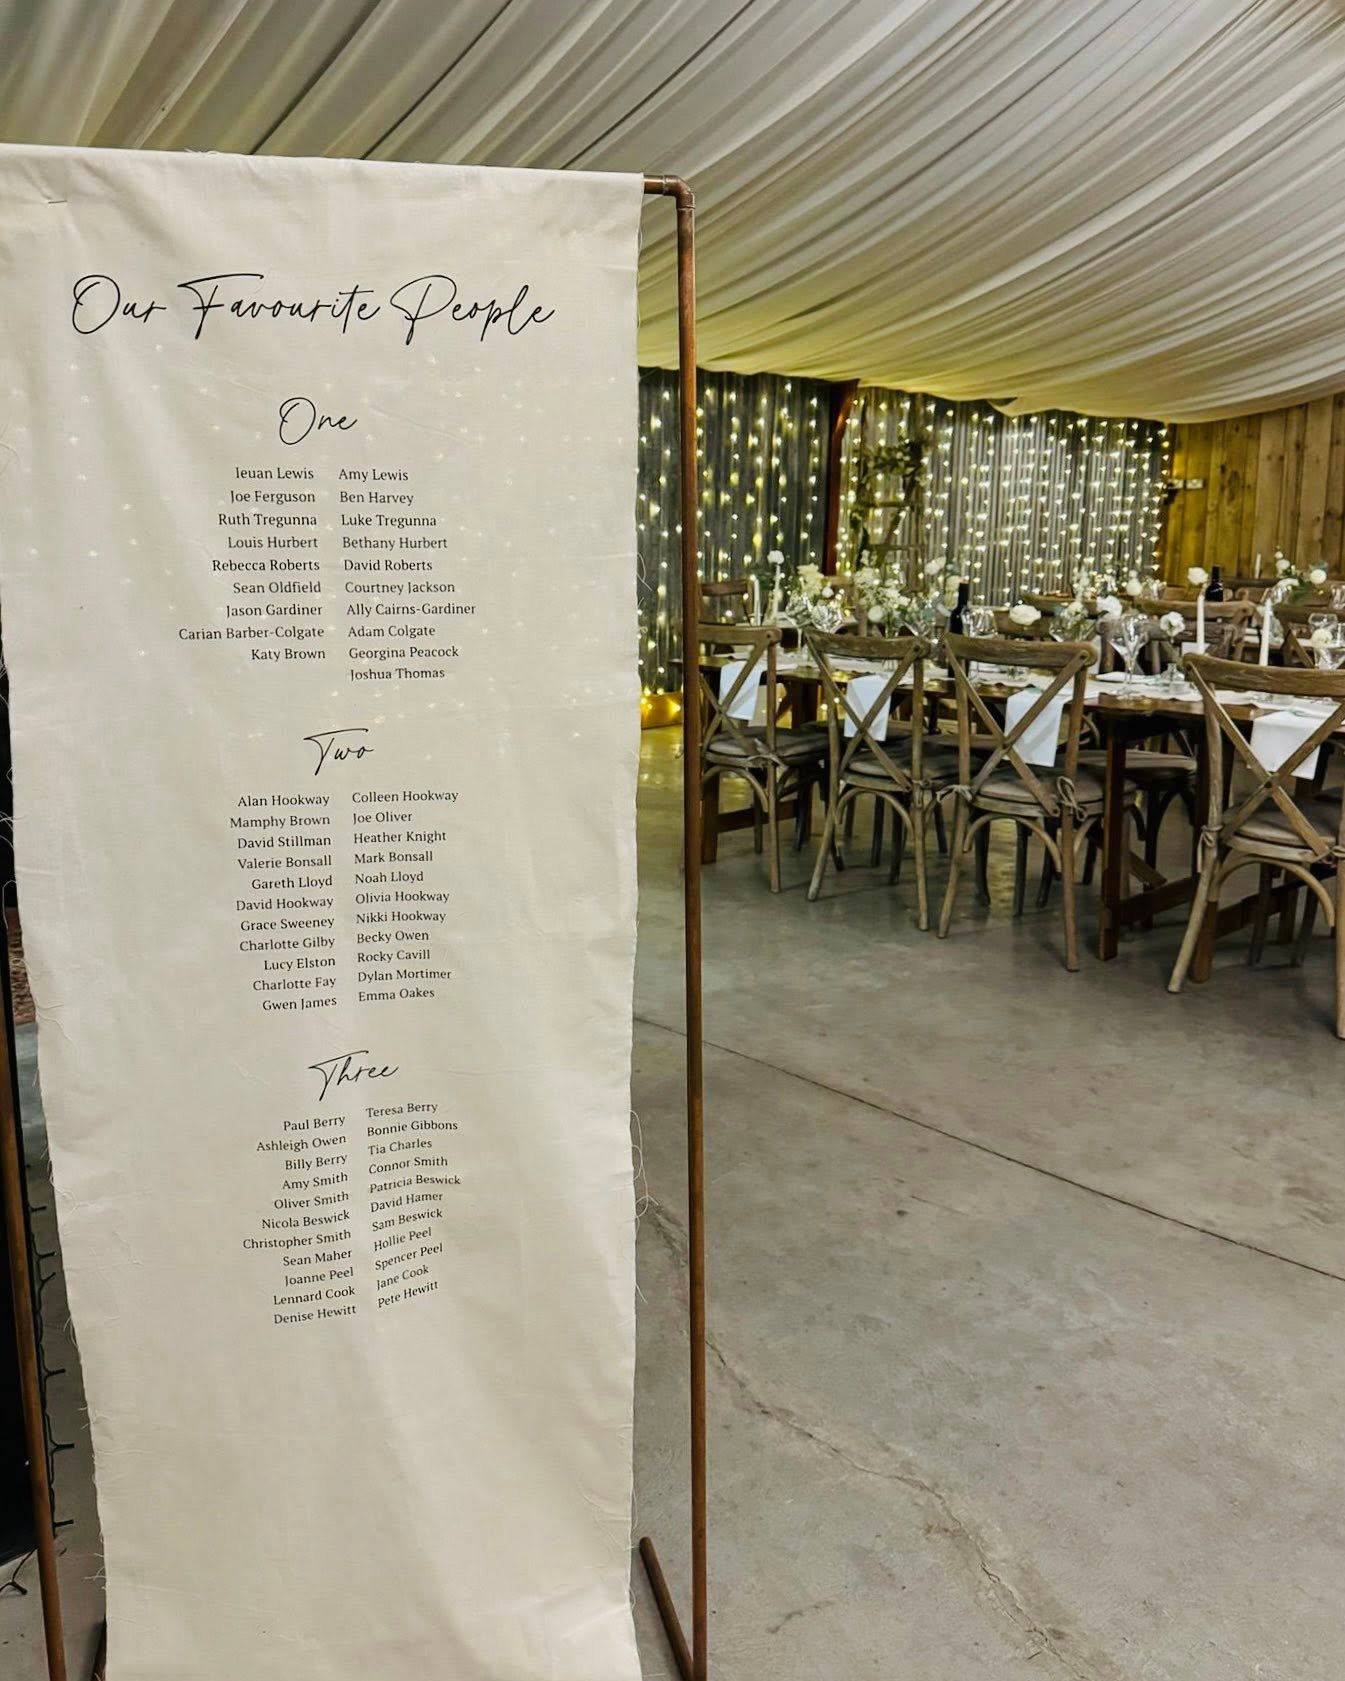 Our Favourite People
One
Ieuan Lewis Amy Lewis
Joe Ferguson Ben Harvey
Ruth Tregunna Luke Tregunna
Louis Hurbert Bethany Hurbert
Rebecca Roberts David Roberts
Sean Oldfield Courtney Jackson
Jason Gardiner Ally Cairns-Gardiner
Carian Barber-Colgate Adam Colgate
Katy Brown Georgina Peacock
Joshua Thomas
Two
Alan Hookway Colleen Hookway
Mamphy Brown Joe Oliver
David Stillman Heather Knight
Valerie Bonsall Mark Bonsall
Gareth Lloyd Noah Lloyd
David Hookway Olivia Hookway
Grace Sweeney Nikki Hookway
Charlotte Gilby Becky Owen
Lucy Elston Rocky Cavill
Charlotte Fay Dylan Mortimer
Gwen James Emma Oakes
Three
Paul Berry Teresa Berry
Ashleigh Owen Bonnie Gibbons
Billy Berry Tia Charles
Amy Smith Connor Smith
Oliver Smith Patricia Beswick
Nicola Beswick David Hamer
Christopher Smith Sam Beswick
Sean Maher Hollie Peel
Joanne Peel Spencer Peel
Lennard Cook Jane Cook
Denise Hewitt Pete Hewitt